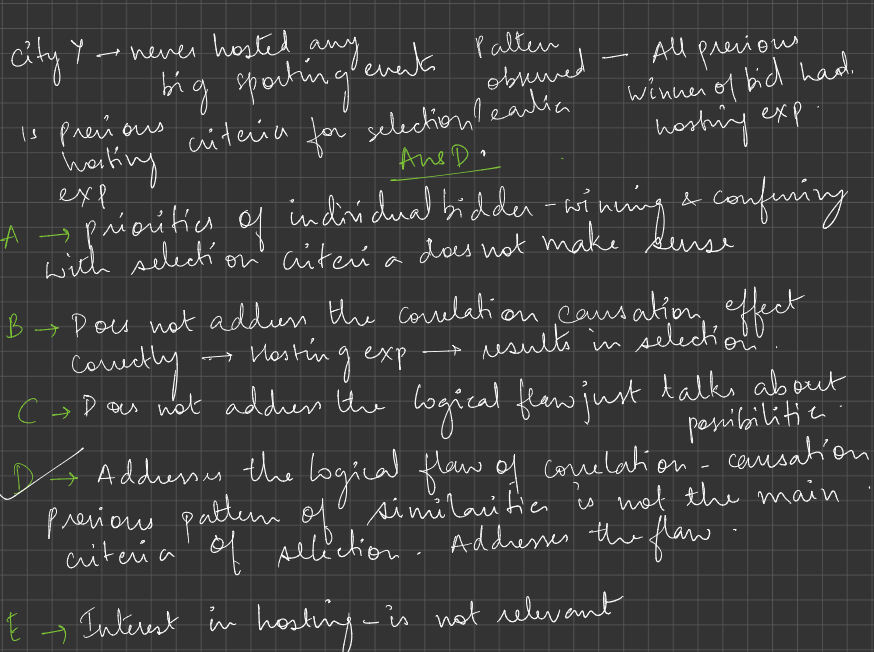 City Y → never hosted any big sporting events
Pattern observed earlier — All previous winner of bid had hosting exp.
Is previous hosting exp criteria for selection?
Ans D.
A → priorities of individual bidder - winning & confirming
with selection criteria does not make sense
B → Does not address the correlation causation effect
correctly → Hosting exp → results in selection.
C → Does not address the logical flaw just talks about
possibilities.
D → Addresses the logical flaw of correlation - causation
previous pattern of similarities is not the main
criteria of selection. Addresses the flaw.
E → Interest in hosting - is not relevant